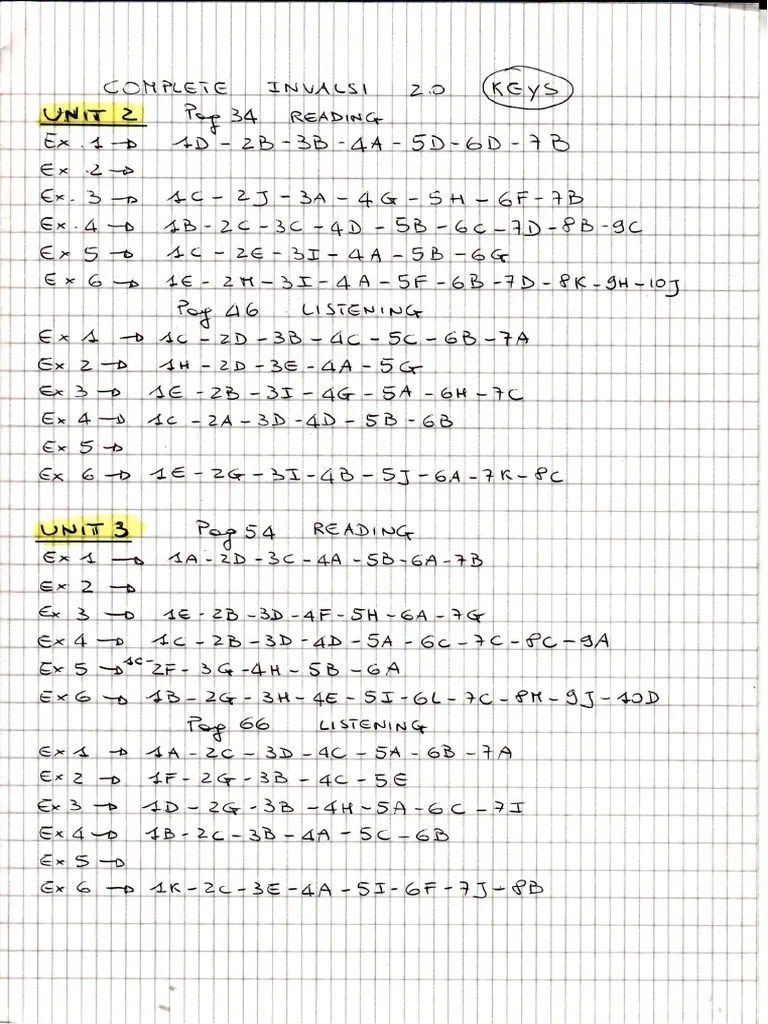 COMPLETE INVALSI 2.0 KEYS
UNIT 2 Pag 34 READING
Ex. 1 → 1D - 2B - 3B - 4A - 5D - 6D - 7B
Ex. 2 →
Ex. 3 → 1C - 2J - 3A - 4G - 5H - 6F - 7B
Ex. 4 → 1B - 2C - 3C - 4D - 5B - 6C - 7D - 8B - 9C
Ex 5 → 1C - 2E - 3I - 4A - 5B - 6G
Ex 6 → 1E - 2M - 3I - 4A - 5F - 6B - 7D - 8K - 9H - 10J
Pag 46 LISTENING
Ex 1 → 1C - 2D - 3B - 4C - 5C - 6B - 7A
Ex 2 → 1H - 2D - 3E - 4A - 5G
Ex 3 → 1E - 2B - 3I - 4G - 5A - 6H - 7C
Ex 4 → 1C - 2A - 3D - 4D - 5B - 6B
Ex 5 →
Ex 6 → 1E - 2G - 3I - 4B - 5J - 6A - 7K - 8C
UNIT 3 Pag 54 READING
Ex 1 → 1A - 2D - 3C - 4A - 5B - 6A - 7B
Ex 2 →
Ex 3 → 1E - 2B - 3D - 4F - 5H - 6A - 7G
Ex 4 → 1C - 2B - 3D - 4D - 5A - 6C - 7C - 8C - 9A
Ex 5 → 1C - 2F - 3G - 4H - 5B - 6A
Ex 6 → 1B - 2G - 3H - 4E - 5I - 6L - 7C - 8M - 9J - 10D
Pag 66 LISTENING
Ex 1 → 1A - 2C - 3D - 4C - 5A - 6B - 7A
Ex 2 → 1F - 2G - 3B - 4C - 5E
Ex 3 → 1D - 2G - 3B - 4H - 5A - 6C - 7I
Ex 4 → 1B - 2C - 3B - 4A - 5C - 6B
Ex 5 →
Ex 6 → 1K - 2C - 3E - 4A - 5I - 6F - 7J - 8B